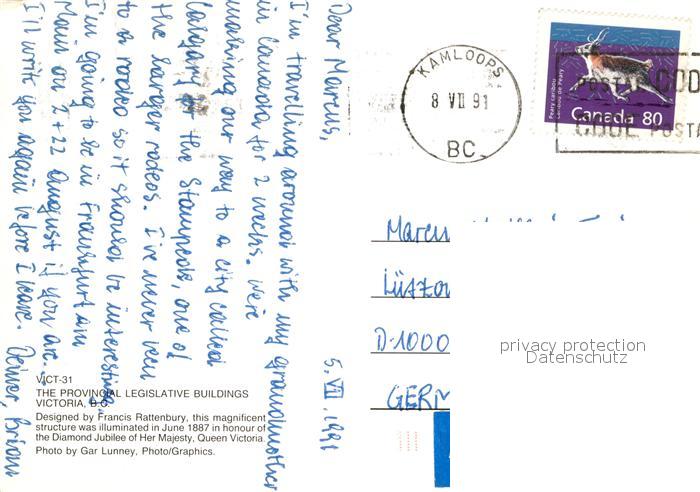 Dear Marcus,
I'm travelling around with my grandmother
in Canada for 2 weeks. We're
making our way to a city called
Calgary for the Stampede, one of
the larger rodeos. I've never been
to a rodeo so it should be interesting.
I'm going to be in Frankfurt am
Main on 2 + 22 August if you are.
I'll write you again before I leave. Deiner, Brian
5. VII. 1991
KAMLOOPS
8 VII 91
BC
POSTAL CODE
CODE POSTA
Peary caribou
Caribou de Peary
Canada 80
Marcu
Lützow
D-1000
GERM
privacy protection
Datenschutz
VICT-31
THE PROVINCIAL LEGISLATIVE BUILDINGS
VICTORIA, B.C.
Designed by Francis Rattenbury, this magnificent
structure was illuminated in June 1887 in honour of
the Diamond Jubilee of Her Majesty, Queen Victoria.
Photo by Gar Lunney, Photo/Graphics.